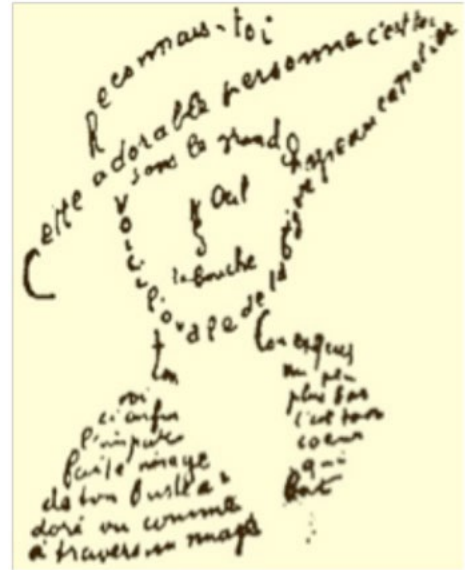 Reconnais-toi
Cette adorable personne c'est toi
sous le grand chapeau canotier
Oeil
la bouche
Voici l'ovale de ta figure
ton
cou
exquis
Voici enfin
l'imparfaite image
de ton buste a
doré vu comme
à travers un nuage
un peu
plus bas
c'est ton
coeur
qui
bat